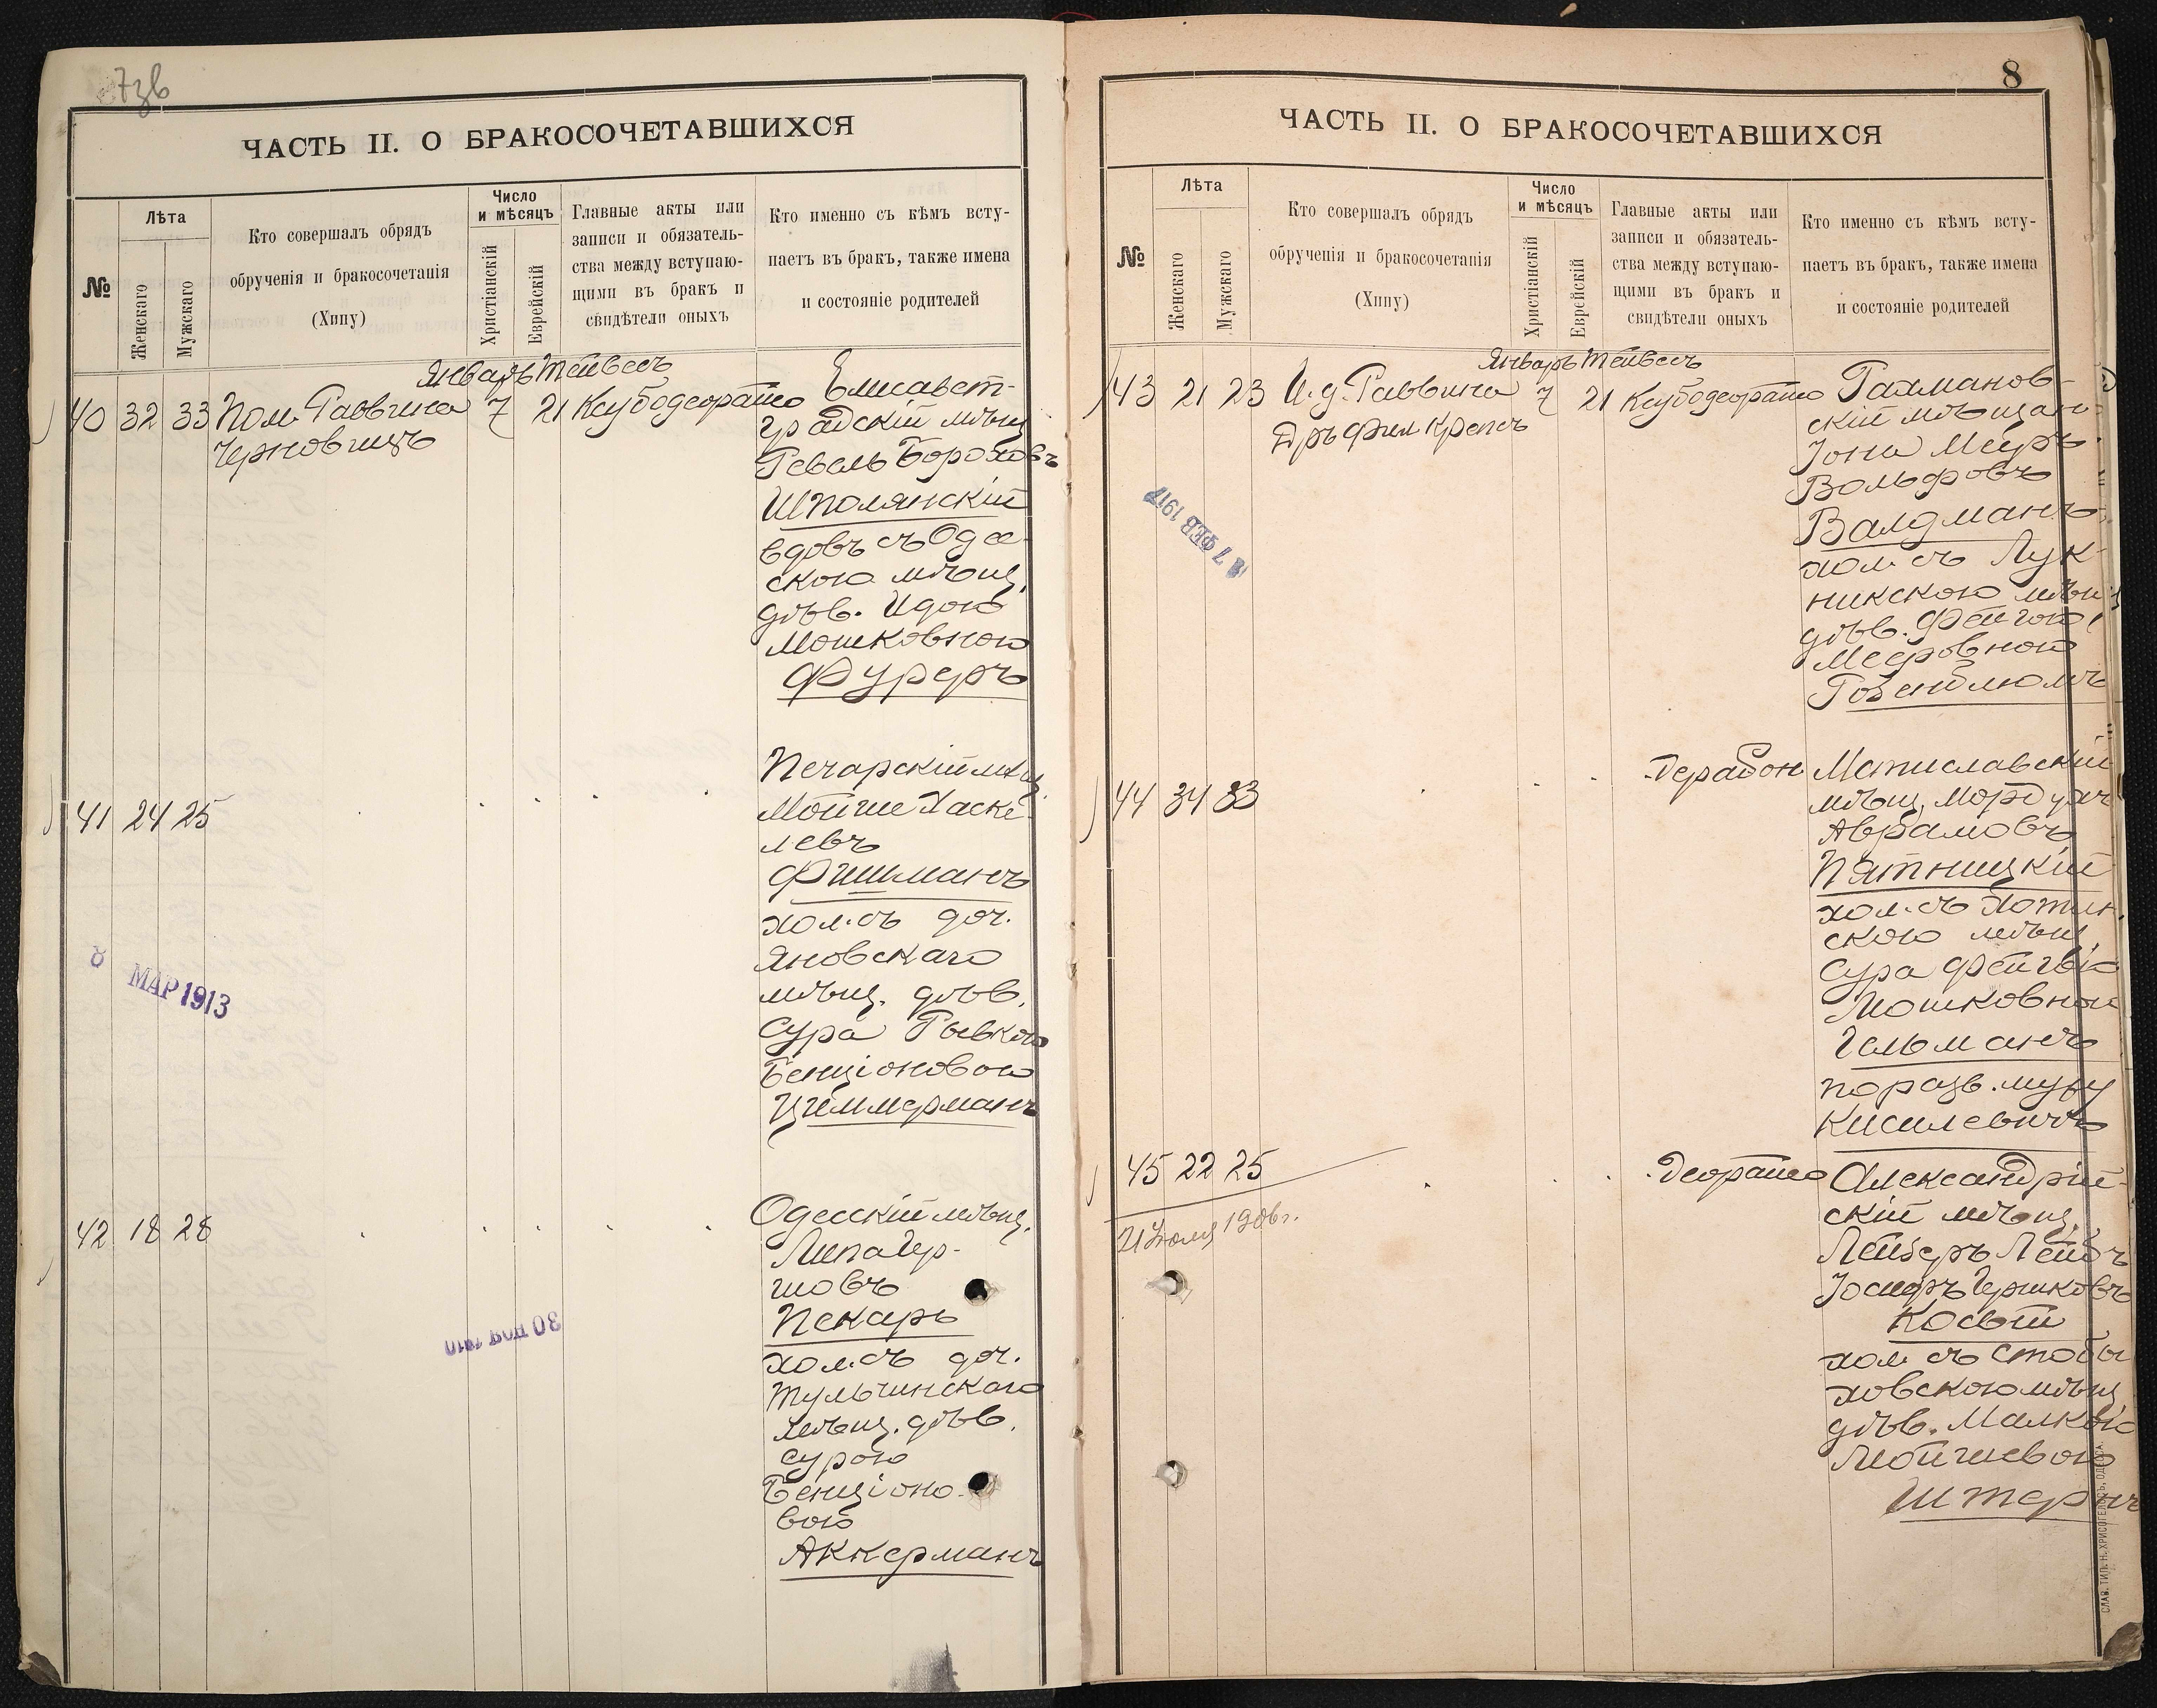 7зв
ЧАСТЬ II. О БРАКОСОЧЕТАВШИХСЯ
№
Лѣта
Женскаго
Мужскаго
Кто совершалъ обрядъ
обрученія и бракосочетанія
(Хипу)
Число
и мѣсяцъ
Христіанскій
Еврейскій
Главные акты или
записи и обязатель-
ства между вступаю-
щими въ бракъ и
свидѣтели оныхъ
Кто именно съ кѣмъ всту-
паетъ въ бракъ, также имена
и состояніе родителей
Январь Тейвесъ
40 32 33 Пом. Раввина 7 21 Ксубодеорайсо Елисавет-
Черновицъ
градскій мѣщ
Гевель Бороховъ
Шполянскій
вдовъ съ Одес
скою мѣщ.
дѣв. Идою
Мошковною
Фуреръ
41 24 25
Печарскій мѣщ.
Мойше Хаске-
левъ
Фишманъ
хол. съ доч.
Яновскаго
мѣщ. дѣв.
Сура Рывкою
Бенціоновою
Циммерманъ
8 МАР 1913
42 18 28
Одесскій мѣщ.
Липа Гер-
шовъ
Пекарь
хол. съ доч.
Тульчинскаго
мѣщ. дѣв.
Сурою
Бенціоно-
вою
Аккерманъ
30 НОЯ 1910
8
ЧАСТЬ II. О БРАКОСОЧЕТАВШИХСЯ
№
Лѣта
Женскаго
Мужскаго
Кто совершалъ обрядъ
обрученія и бракосочетанія
(Хипу)
Число
и мѣсяцъ
Христіанскій
Еврейскій
Главные акты или
записи и обязатель-
ства между вступаю-
щими въ бракъ и
свидѣтели оныхъ
Кто именно съ кѣмъ всту-
паетъ въ бракъ, также имена
и состояніе родителей
Январь Тейвесъ
43 21 23 И. д. Раввина 7 21 Ксубодеорайсо
Дръ Фил Крепсъ
скій мѣщан
Іона Меръ
Вольфовъ
Валдманъ
хол. съ Лук-
никскою мѣщ
дѣв. Фейгою
Мееровною
Розенблюмъ
7 ФЕВ 1917
44 34 33 Дерабон Мстиславскій
мѣщ. Мордухъ
Аврамовъ
Пятницкій
хол. съ Хотин.
скою мѣщ.
Сура Фейгою
Мошковною
Гельманъ
по разв. мужу
Кисилевичъ
45 22 25 Деорайсо Александрій-
21 Іюля 1906 г.
скій мѣщ.
Лейзеръ Лейбъ
Іосифъ Гершковъ
Косый
хол. съ Стобы
ховскою мѣщ
дѣв. Малкою
Мойшевою
Штернъ
СЛАВ. ТИП. Н. ХРИСОГЕЛОСЪ, ОДЕССА.